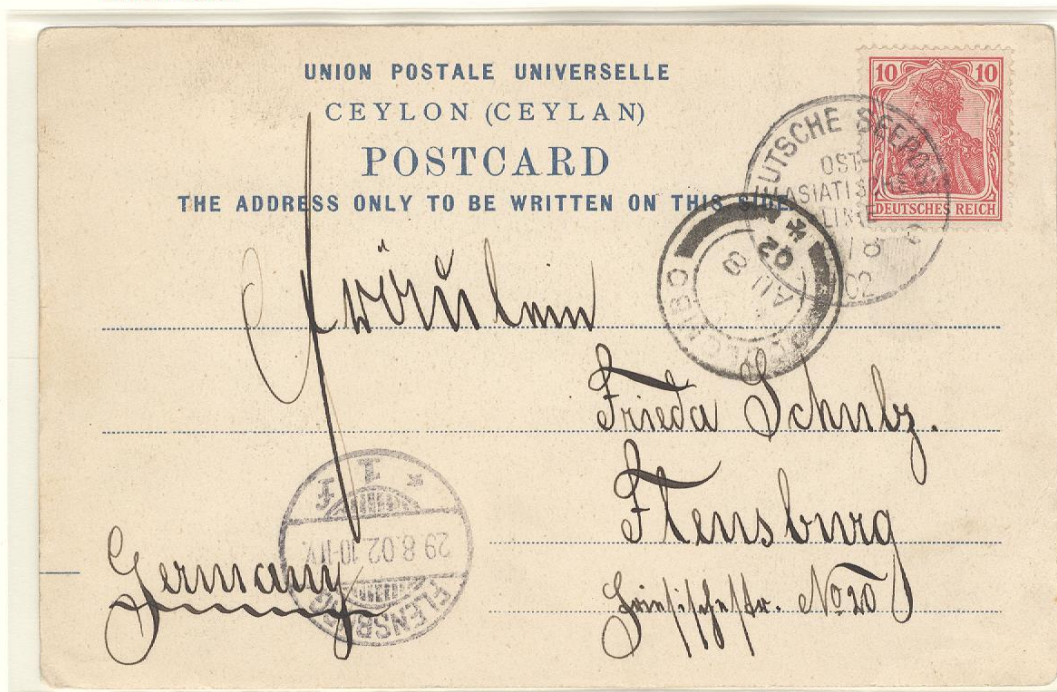 UNION POSTALE UNIVERSELLE
CEYLON (CEYLAN)
POSTCARD
THE ADDRESS ONLY TO BE WRITTEN ON THIS SIDE.
10 10
DEUTSCHES REICH
DEUTSCHE SEEPOST
OST-
ASIATISCHE
LINIE
8
02
COLOMBO
AU 8
02
Fräulein
Frieda Schulz.
Flensburg
Friesischestr. No 20
Germany
FLENSBURG
29.8.02.10-11V.
* 1 f